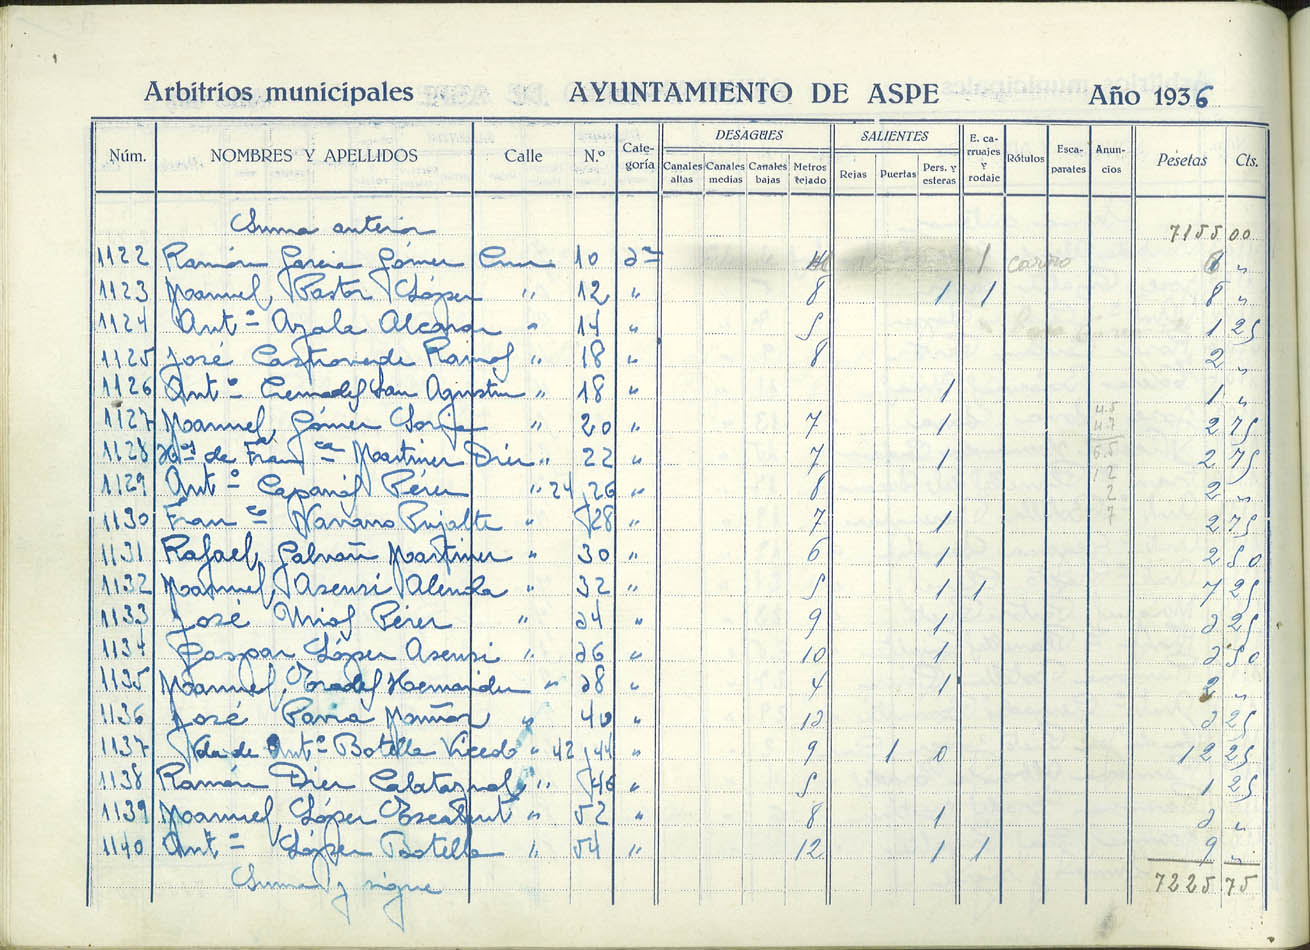 Arbitrios municipales AYUNTAMIENTO DE ASPE Año 1936
DESAGÜES SALIENTES
Núm. NOMBRES Y APELLIDOS Calle N.º Cate-goría Canales altas Canales medias Canales bajas Metros tejado Rejas Puertas Pers. y esteras E. ca-rruajes y rodaje Rótulos Esca-parates Anun-cios Pesetas Cts.
Suma anterior 7155 00
1122 Ramón García Gómez Cruz 10 2ª 1 carro 6 "
1123 Manuel Pastor López " 12 " 8 1 1 8 "
1124 Antº Azala Alcaraz " 14 " 5 1 25
1125 José Castroverde Ramos " 18 " 8 2 "
1126 Antº Cremades San Agustin " 18 " 1 1 "
1127 Manuel Gómez " 20 " 7 1 2 75
1128 de Franca Martinez Diez " 22 " 7 1 2 75
1129 Antº Caparrós Pérez " 24 y 26 " 8 2 "
1130 Franco Navarro Pujalte " 28 " 7 1 2 75
1131 Rafael Galvañ Martinez " 30 " 6 1 2 50
1132 Manuel Asensi Alenda " 32 " 5 1 1 7 25
1133 José Mirof Pérez " 34 " 9 1 3 25
1134 Gaspar López Asensi " 36 " 10 1 3 50
1135 Manuel Prades Hernandez " 38 " 4 1 2 "
1136 José Pavia Muñoz " 40 " 13 3 25
1137 Vda de Antº Botella Vicedo " 42 y 44 " 9 1 0 12 25
1138 Ramón Diez Calatayud " 46 " 5 1 25
1139 Manuel López " 52 " 8 1 3 "
1140 Antº López Botella " 54 " 12 1 1 9 "
Suma y sigue 7225 75